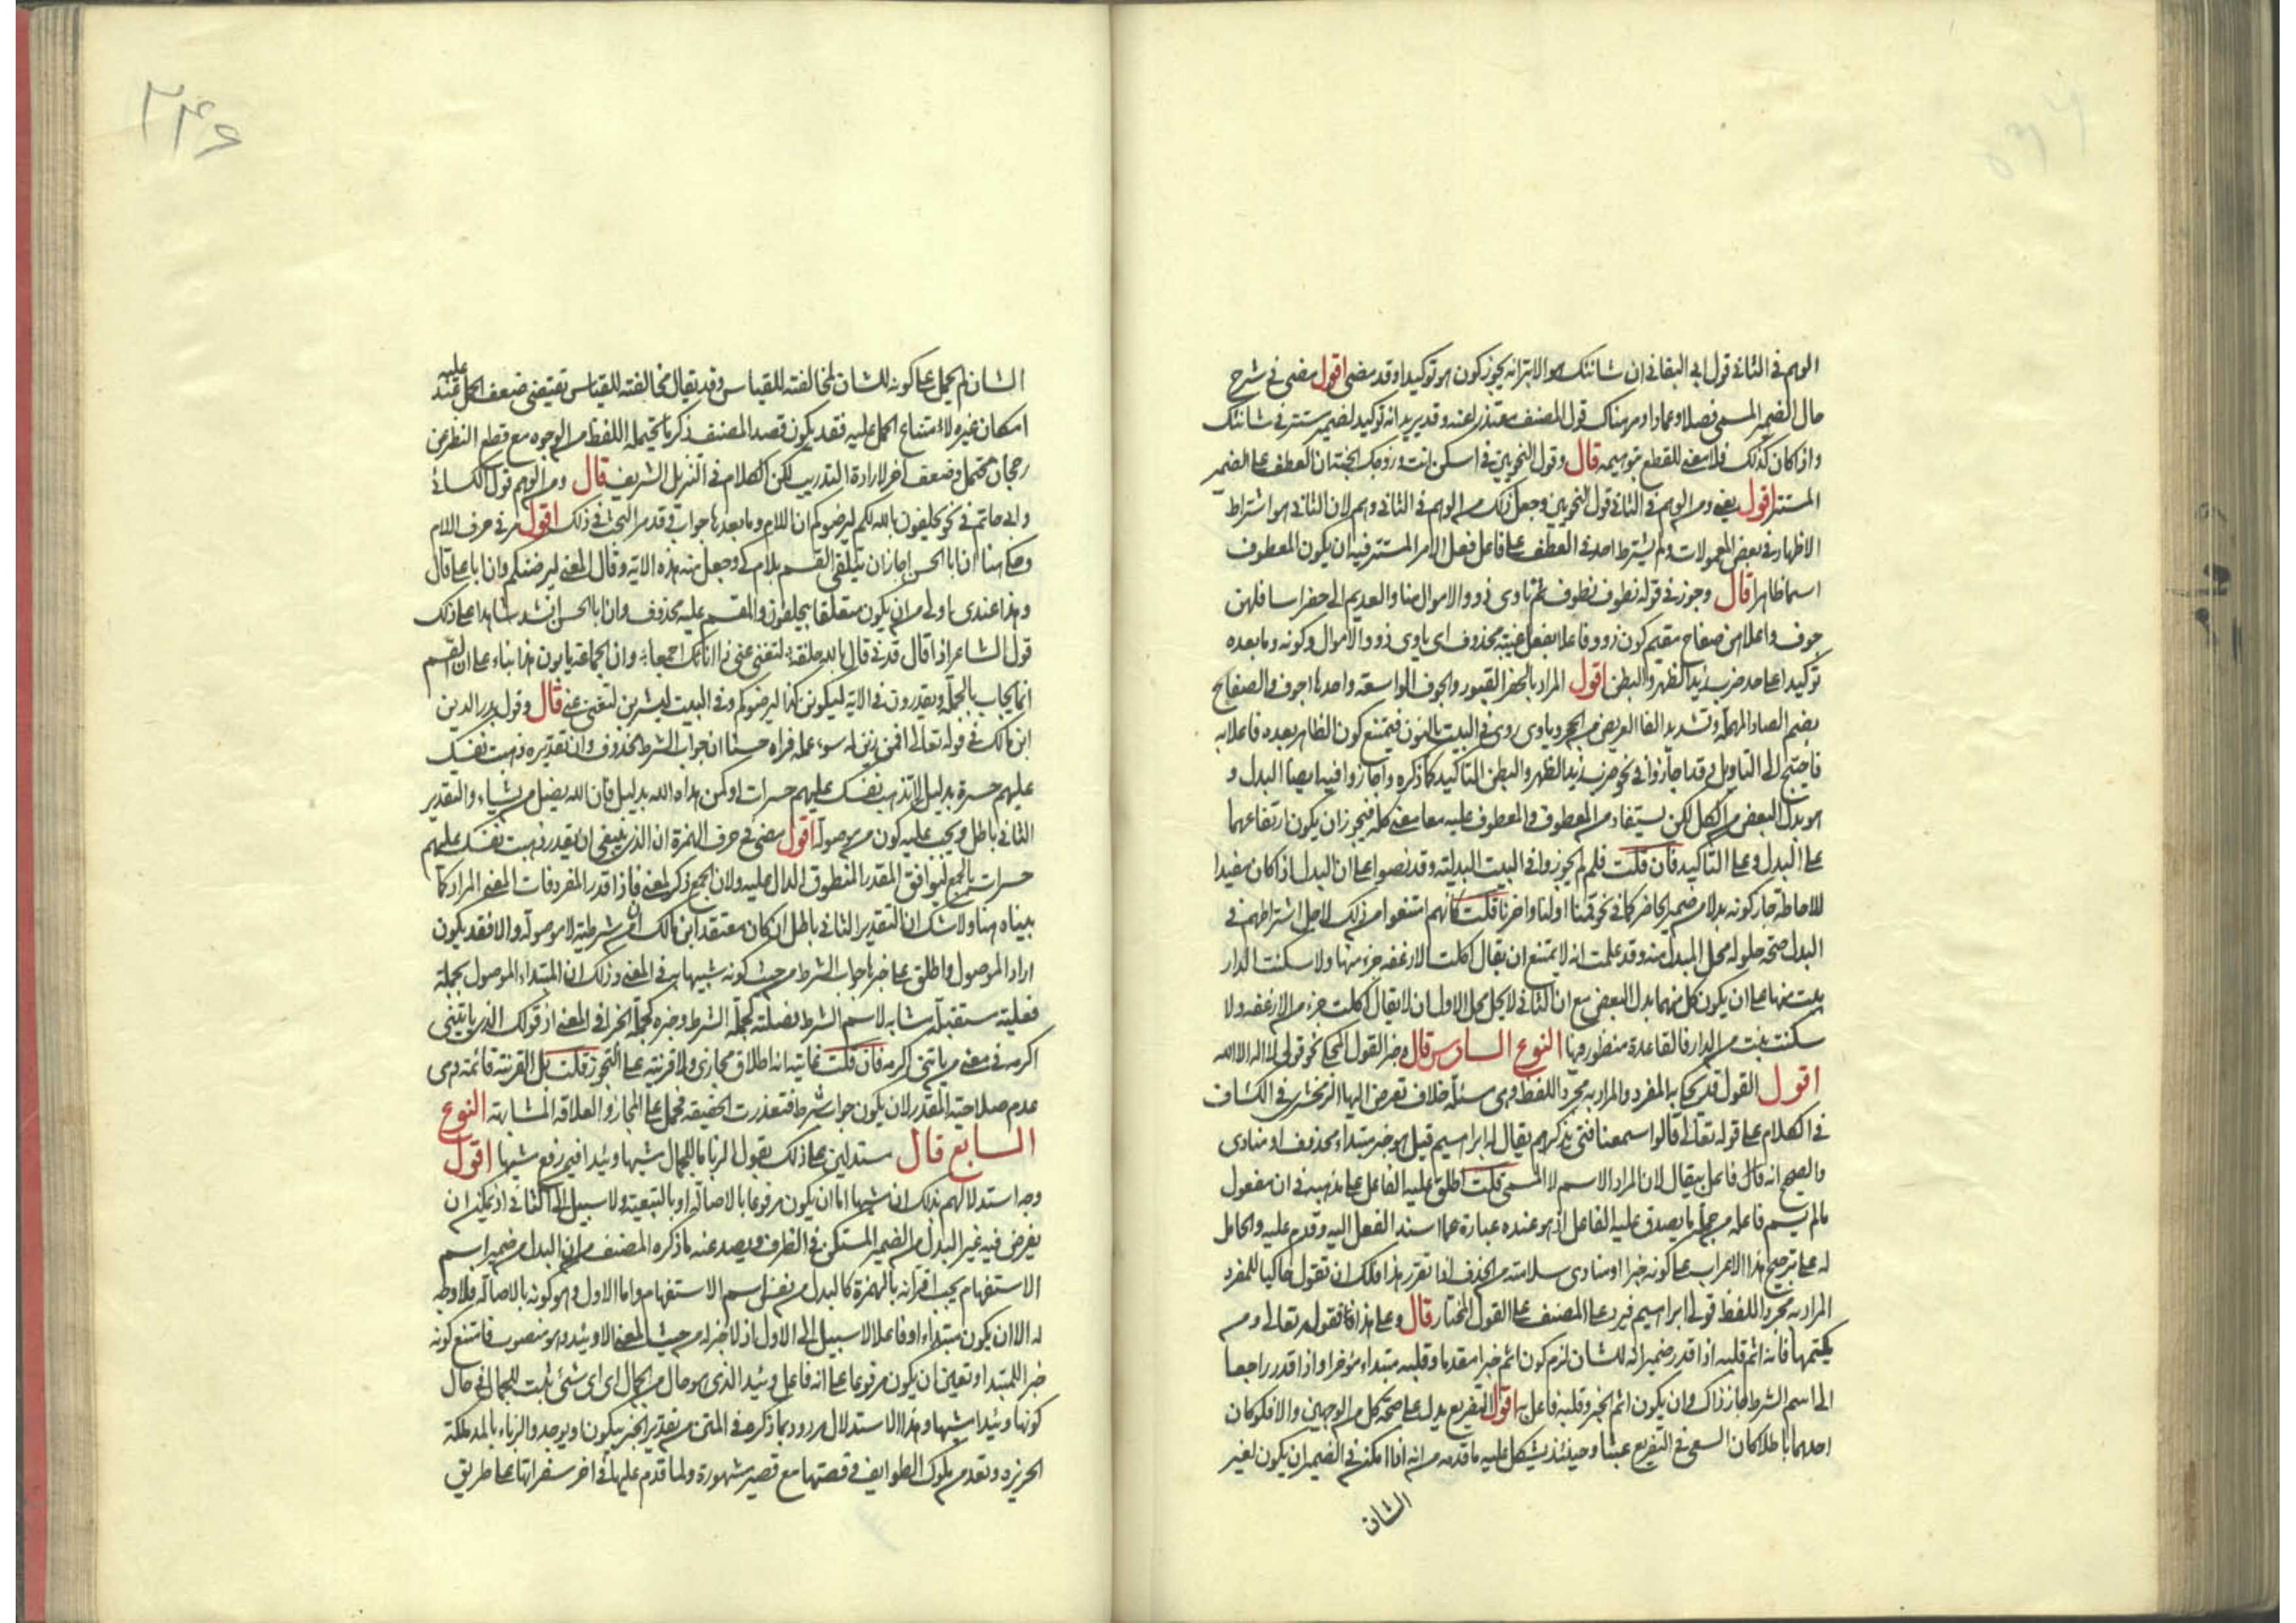 الوهم في الثاني قول ابي البقا في ان شانئك هو الابتر انه يجوز كون هو توكيدا وقد مضى اقول مضى في شرح
حال الضمير المسمى فصلا وعمادا ومن هناك قول المصنف معتذرا عنه وقد يريد انه توكيد لضمير مستتر في شانئك
واذا كان كذلك فلا معنى للقطع بتوهيمه قال وقول النحويين في اسكن انت وزوجك الجنة ان العطف على الضمير
المستتر اقول يعني ومن الوهم في الثاني قول النحويين وجعل ذلك من الوهم في الثاني وهم لان الثاني هو اشتراط
الاظهار في بعض المعمولات ولم يشترط احد في العطف على فاعل فعل الامر المستتر فيه ان يكون المعطوف
اسما ظاهرا قال وجوز في قوله نطوف نطوف ثم ناوى ذوو الاموال منا والعديم الى حفر اسافلهن
جوف واعلاهن صفاح مقيم كون ذوو فاعلا بفعل غيبة محذوف اى ياوى ذوو الاموال وكونه وما بعده
توكيدا على حد ضرب زيد الظهر والبطن اقول المراد بالحفر القبور والجوف الواسعة واحدها اجوف والصفاح
بضم الصاد المهملة وتشديد الفا العريض من الحجر وياوى روى في البيت بالنون فيمتنع كون الظاهر بعده فاعلا به
فاحتيج الى التاويل وقد اجازوا في نحو ضرب زيد الظهر والبطن التاكيد كما ذكره واجازوا فيه ايضا البدل و
هو بدل البعض من الكل لكن يستفاد من المعطوف والمعطوف عليه معا معنى كله فيجوز ان يكون ارتفاعهما
على البدل وعلى التاكيد فان قلت فلم لم يجوزوا في البيت البدلية وقد نصوا على ان البدل اذا كان مفيدا
للاحاطة جاز كونه بدلا من ضمير الحاضر كما في نحو قمنا اولنا واخرنا قلت كانهم امتنعوا من ذلك لاجل اشتراطهم في
البدل صحة حلوله محل المبدل منه وقد علمت انه لا يمتنع ان يقال اكلت الارغفة جزء منها ولا سكنت الدار
بيت منها على ان يكون كل منهما بدل البعض مع ان الثاني لا يحل محل الاول اذ لا يقال اكلت جزء من الارغفة ولا
سكنت بيت من الدار فالقاعدة منظور فيها النوع السادس قال وخبر القول المحكي نحو قولى لا اله الا الله
اقول القول قد يحكى به المفرد والمراد به مجرد اللفظ وهى مسئلة خلاف تعرض اليها الزمخشرى في الكشاف
في الكلام على قوله تعالى قالوا سمعنا فتى يذكرهم يقال له ابراهيم قيل هو خبر مبتداء محذوف او منادى
والصحيح انه قال فاعل يقال لان المراد الاسم لا المسمى قلت اطلق عليه الفاعل على مذهبه في ان مفعول
مالم يسم فاعله من جملة ما يصدق عليه الفاعل اذ هو عنده عبارة عما اسند الفعل اليه وقدم عليه والحامل
له على ترجيح هذا الاعراب على كونه خبرا او منادى سلامته من الحذف اذا تقرر هذا فلك ان تقول حاكيا للمفرد
المراد به مجرد اللفظ قولى ابراهيم فيرد على المصنف على القول المختار قال وعلى هذا فقوله تعالى ومن
يكتمها فانه اثم قلبه اذا قدر ضمير انه للشان لزم كون اثم خبرا مقدما وقلبه مبتداء مؤخرا واذا قدر راجعا
الى اسم الشرط جاز ذاك وان يكون اثم الخبر وقلبه فاعل به اقول التفريع يدل على صحة كل من الوجهين والا فلو كان
احدهما باطلا كان السعى في التفريع عبثا وحينئذ يشكل عليه ما قدمه من انه اذا امكن في الضمير ان يكون لغير
الشان
٢٤٦
الشان لم يحمل على كونه للشان لمخالفته للقياس وقد يقال مخالفته للقياس تقتضى ضعف الحمل عليه عند
امكان غيره لا امتناع الحمل عليه فقد يكون قصد المصنف ذكر ما يحتمله اللفظ من الوجوه مع قطع النظر عن
رجحان محتمل وضعف اخر لارادة التدريب لكن الكلام في التنزيل الشريف قال ومن الوهم قول الكسائى
وابى حاتم في نحو يحلفون بالله لكم ليرضوكم ان اللام وما بعدها جواب وقد مر البحث في ذلك اقول مر في حرف اللام
وحكى هنا ان ابا الحسن اجاز ان يتلقى القسم بلام كى وجعل منه هذه الاية وقال المعنى ليرضنكم وان ابا على قال
وهذا عندى اولى من ان يكون متعلقا بيحلفون والمقسم عليه محذوف وان ابا الحسن انشد شاهدا على ذلك
قول الشاعر اذا قال قدنى قال بالله حلفة لتغنى عنى ذا انائك اجمعا وان الجماعة يابون هذا بناء على ان القسم
انما يجاب بالجملة ويقدرون في الاية ليكونن كذا ليرضوكم وفي البيت لتشربن لتغنى عنى قال وقول بدر الدين
ابن مالك في قوله تعالى افمن زين له سوء عمله فراه حسنا ان جواب الشرط محذوف وان تقديره ذهبت نفسك
عليهم حسرة بدليل لا تذهب نفسك عليهم حسرات او كمن هداه الله بدليل فان الله يضل من يشاء والتقدير
الثاني باطل ويجب عليه كون من موصولة اقول مضى في حرف الهمزة ان الذى ينبغى ان يقدر ذهبت نفسك عليهم
حسرات بالجمع ليوافق المقدر المنطوق الدال عليه ولان الجمع ذكر لمعنى فاذا قدر المفرد فات المعنى المراد كما
بيناه هنا ولا شك ان التقدير الثاني باطل ان كان معتقد ابن مالك ان من شرطية لا موصولة والا فقد يكون
اراد الموصول واطلق على خبرها جواب الشرط من حيث كونه شبيها به في المعنى وذلك ان المبتداء الموصول بجملة
فعلية مستقبلة مشابه لاسم الشرط فصلته كجملة الشرط وخبره كجملة الجزا في المعنى اذ قولك الذى ياتينى
اكرمه في معنى من ياتنى اكرمه فان قلت غايته انه اطلاق مجازى ولا قرينة على التجوز قلت بل القرينة قائمة وهى
عدم صلاحية المقدر لان يكون جواب شرط فتعذرت الحقيقة فحمل على المجاز والعلاقة المشابهة النوع
السابع قال مستدلين على ذلك بقول الزباما للجمال مشيها وئيدا فيمن رفع مشيها اقول
وجه استدلالهم بذلك ان مشيها اما ان يكون مرفوعا بالاصالة او بالتبعية ولا سبيل الى الثانى اذ لا يمكن ان
يفرض فيه غير البدل من الضمير المستكن في الظرف ويصد عنه ما ذكره المصنف من ان البدل من ضمير اسم
الاستفهام يجب اقترانه بالهمزة كالبدل من نفس اسم الاستفهام واما الاول وهو كونه بالاصالة فلا وجه
له الا ان يكون مبتداء او فاعلا لا سبيل الى الاول اذ لا خبر له من حيث المعنى الا وئيدا وهو منصوب فامتنع كونه
خبرا للمبتدا وتعين ان يكون مرفوعا على انه فاعل وئيدا الذى هو حال من الجمال اى اى شئ ثبت للجمال في حال
كونها وئيدا مشيها وهذا الاستدلال مردود بما ذكره في المتن من تقدير الخبر يكون او يوجد والزباء بالمد ملكة
الجزيرة وتعد من ملوك الطوايف وقصتها مع قصير مشهورة ولما قدم عليها في اخر سفراتها على طريق